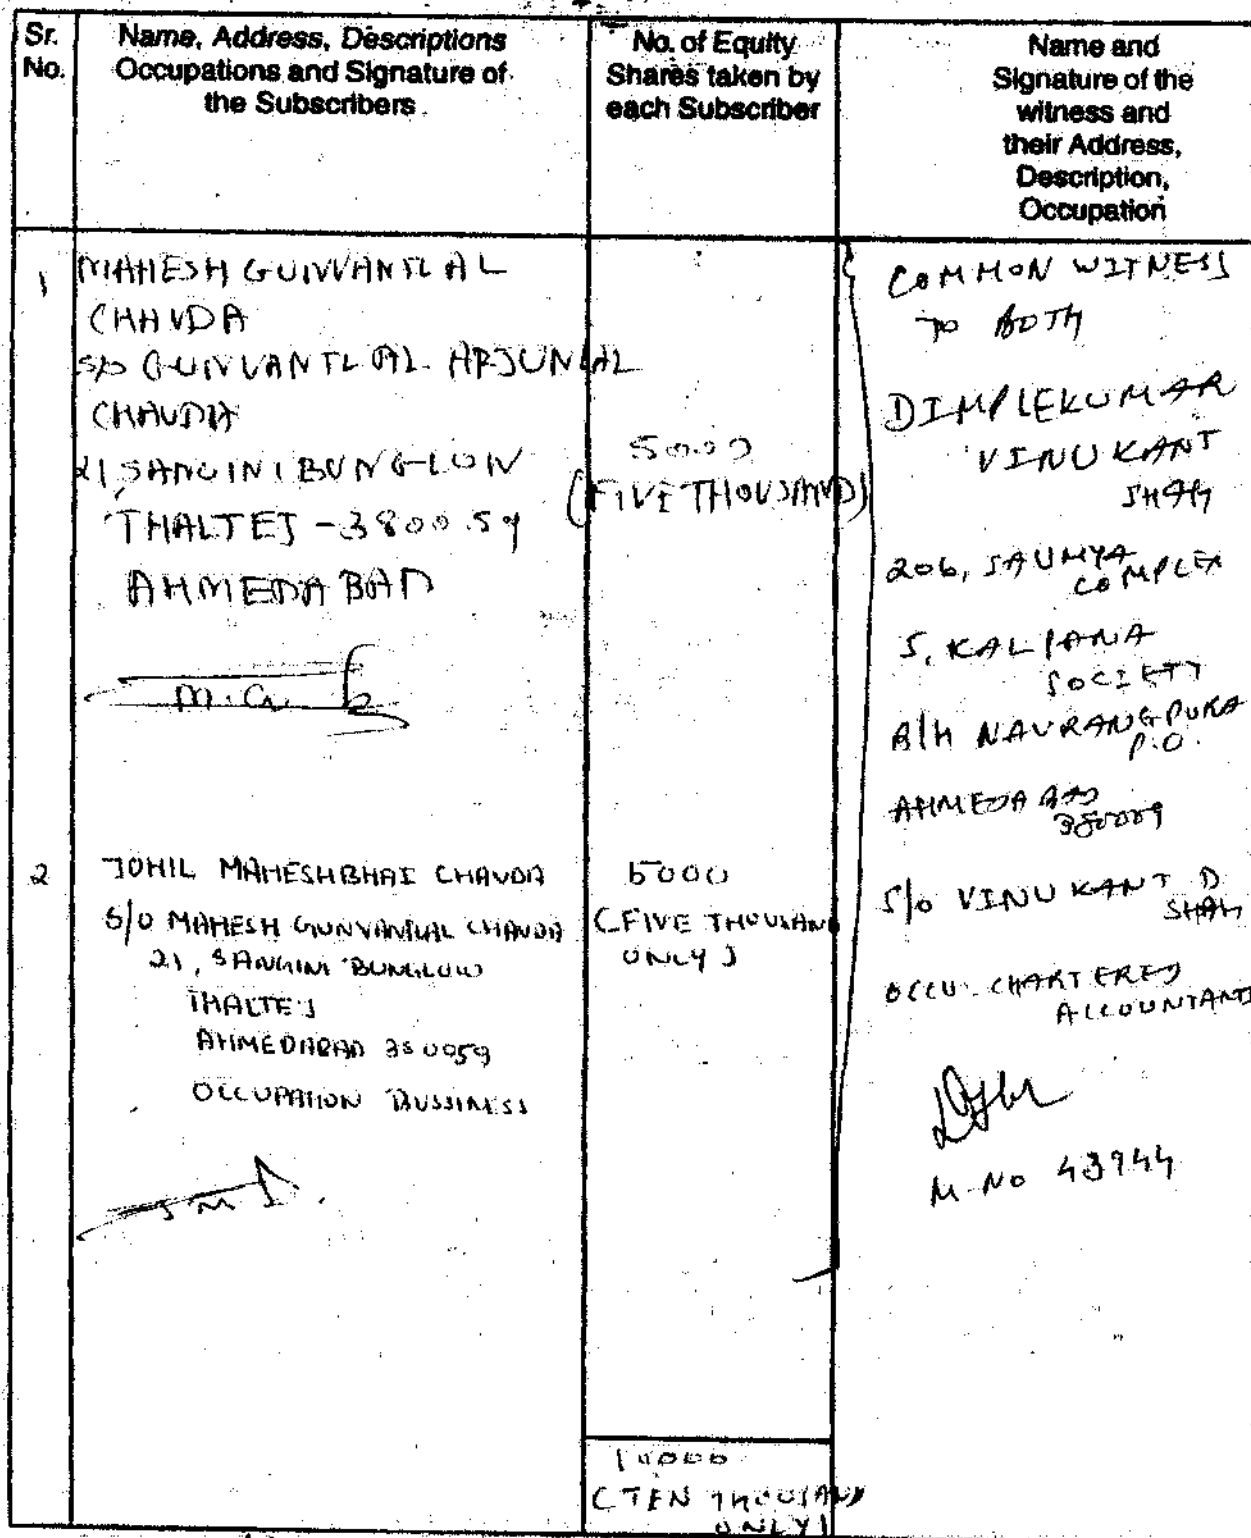 Sr. No.
Name, Address, Descriptions
Occupations and Signature of
the Subscribers
No. of Equity
Shares taken by
each Subscriber
Name and
Signature of the
witness and
their Address,
Description,
Occupation
1
MAHESH GUNVANTLAL
CHAVDA
S/O GUNVANTLAL ARJUNLAL
CHAVDA
21, SANGINI BUNGLOW
THALTEJ - 380059
AHMEDABAD
M.G.
5000
(FIVE THOUSAND)
COMMON WITNESS
TO BOTH
DIMPLEKUMAR
VINUKANT
SHAH
206, SAUMYA
COMPLEX
5, KALPANA
SOCIETY
B/H NAVRANGPURA
P.O.
AHMEDABAD
380009
S/O VINUKANT D
SHAH
OCCU. CHARTERED
ACCOUNTANT
M. NO 43944
2
JOHIL MAHESHBHAI CHAVDA
S/O MAHESH GUNVANTLAL CHAVDA
21, SANGINI BUNGLOW
THALTEJ
AHMEDABAD 380059
OCCUPATION BUSSINESS
5000
(FIVE THOUSAND
ONLY)
10000
(TEN THOUSAND
ONLY)